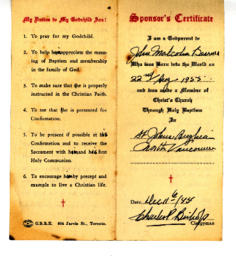 My Duties to My Godchild Are:
1. To pray for my Godchild.
2. To help appreciate the meaning of Baptism and membership
in the family of God.
3. To make sure that he is properly
instructed in the Christian Faith.
4. To see that he is presented for
Confirmation.
5. To be present if possible at his
Confirmation and to receive the
Sacrament with him and his first
Holy Communion.
6. To encourage by precept and
example to live a Christian life.
G.B.R.E. 604 Jarvis St., Toronto.
Sponsor's Certificate
I am a Godparent to
John Malcolm
Who was Born into the World on
22nd
and was made a Member of
Christ's Church
Through Holy Baptism
In
St. John's
North Vancouver
Date, Dec 11
Clergyman